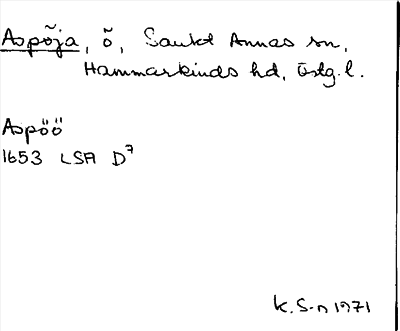 Aspõja, õ, Sankt Annas sn,
Hammarkinds hd, Östg. l.
Aspöö
1653 LSA D⁷
K. S-n 1971